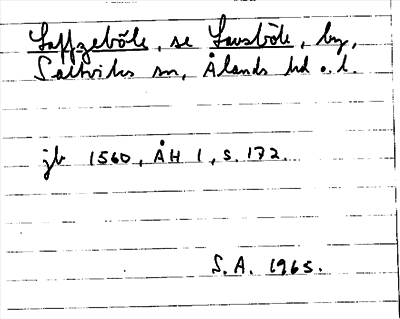 Saffzeböle, se Sausböle, by,
Saltviks sn, Ålands hd o. l.
jb 1560, ÅH 1, s. 172.
S. A. 1965.